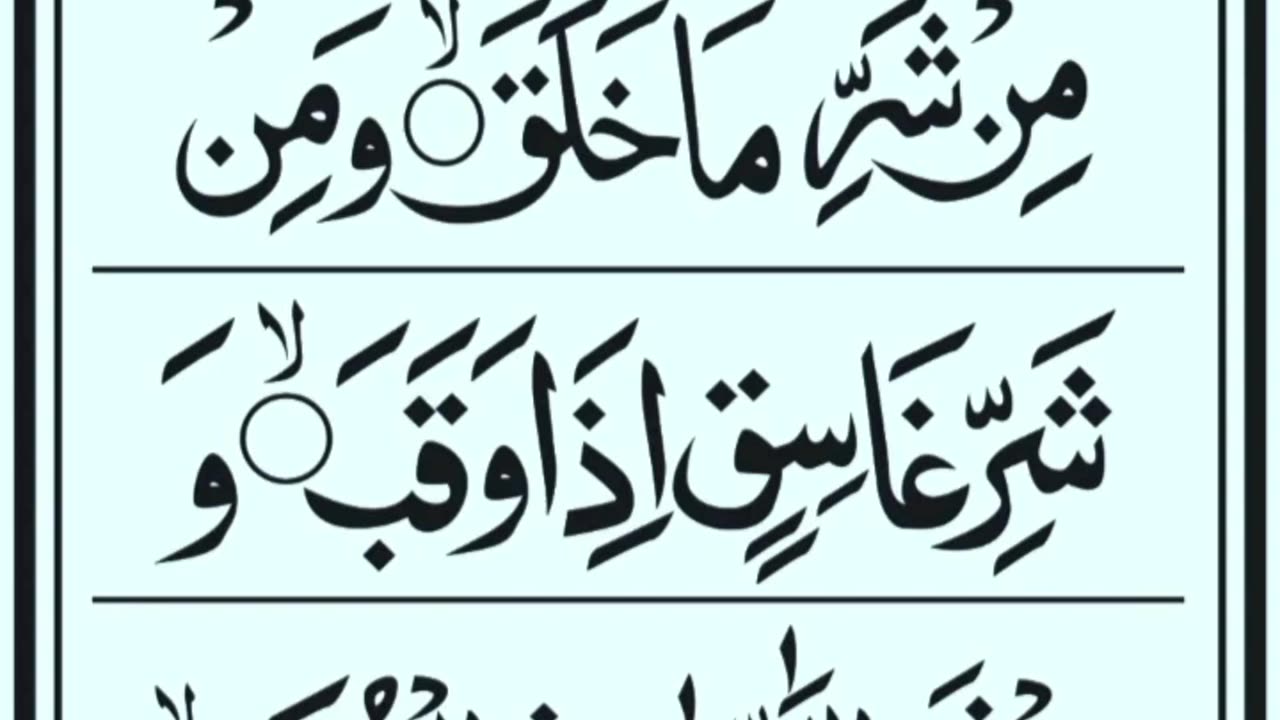 مِنْ شَرِّ مَا خَلَقَ ۙ‏ وَمِنْ
شَرِّ غَاسِقٍ اِذَا وَقَبَ ۙ‏ وَ